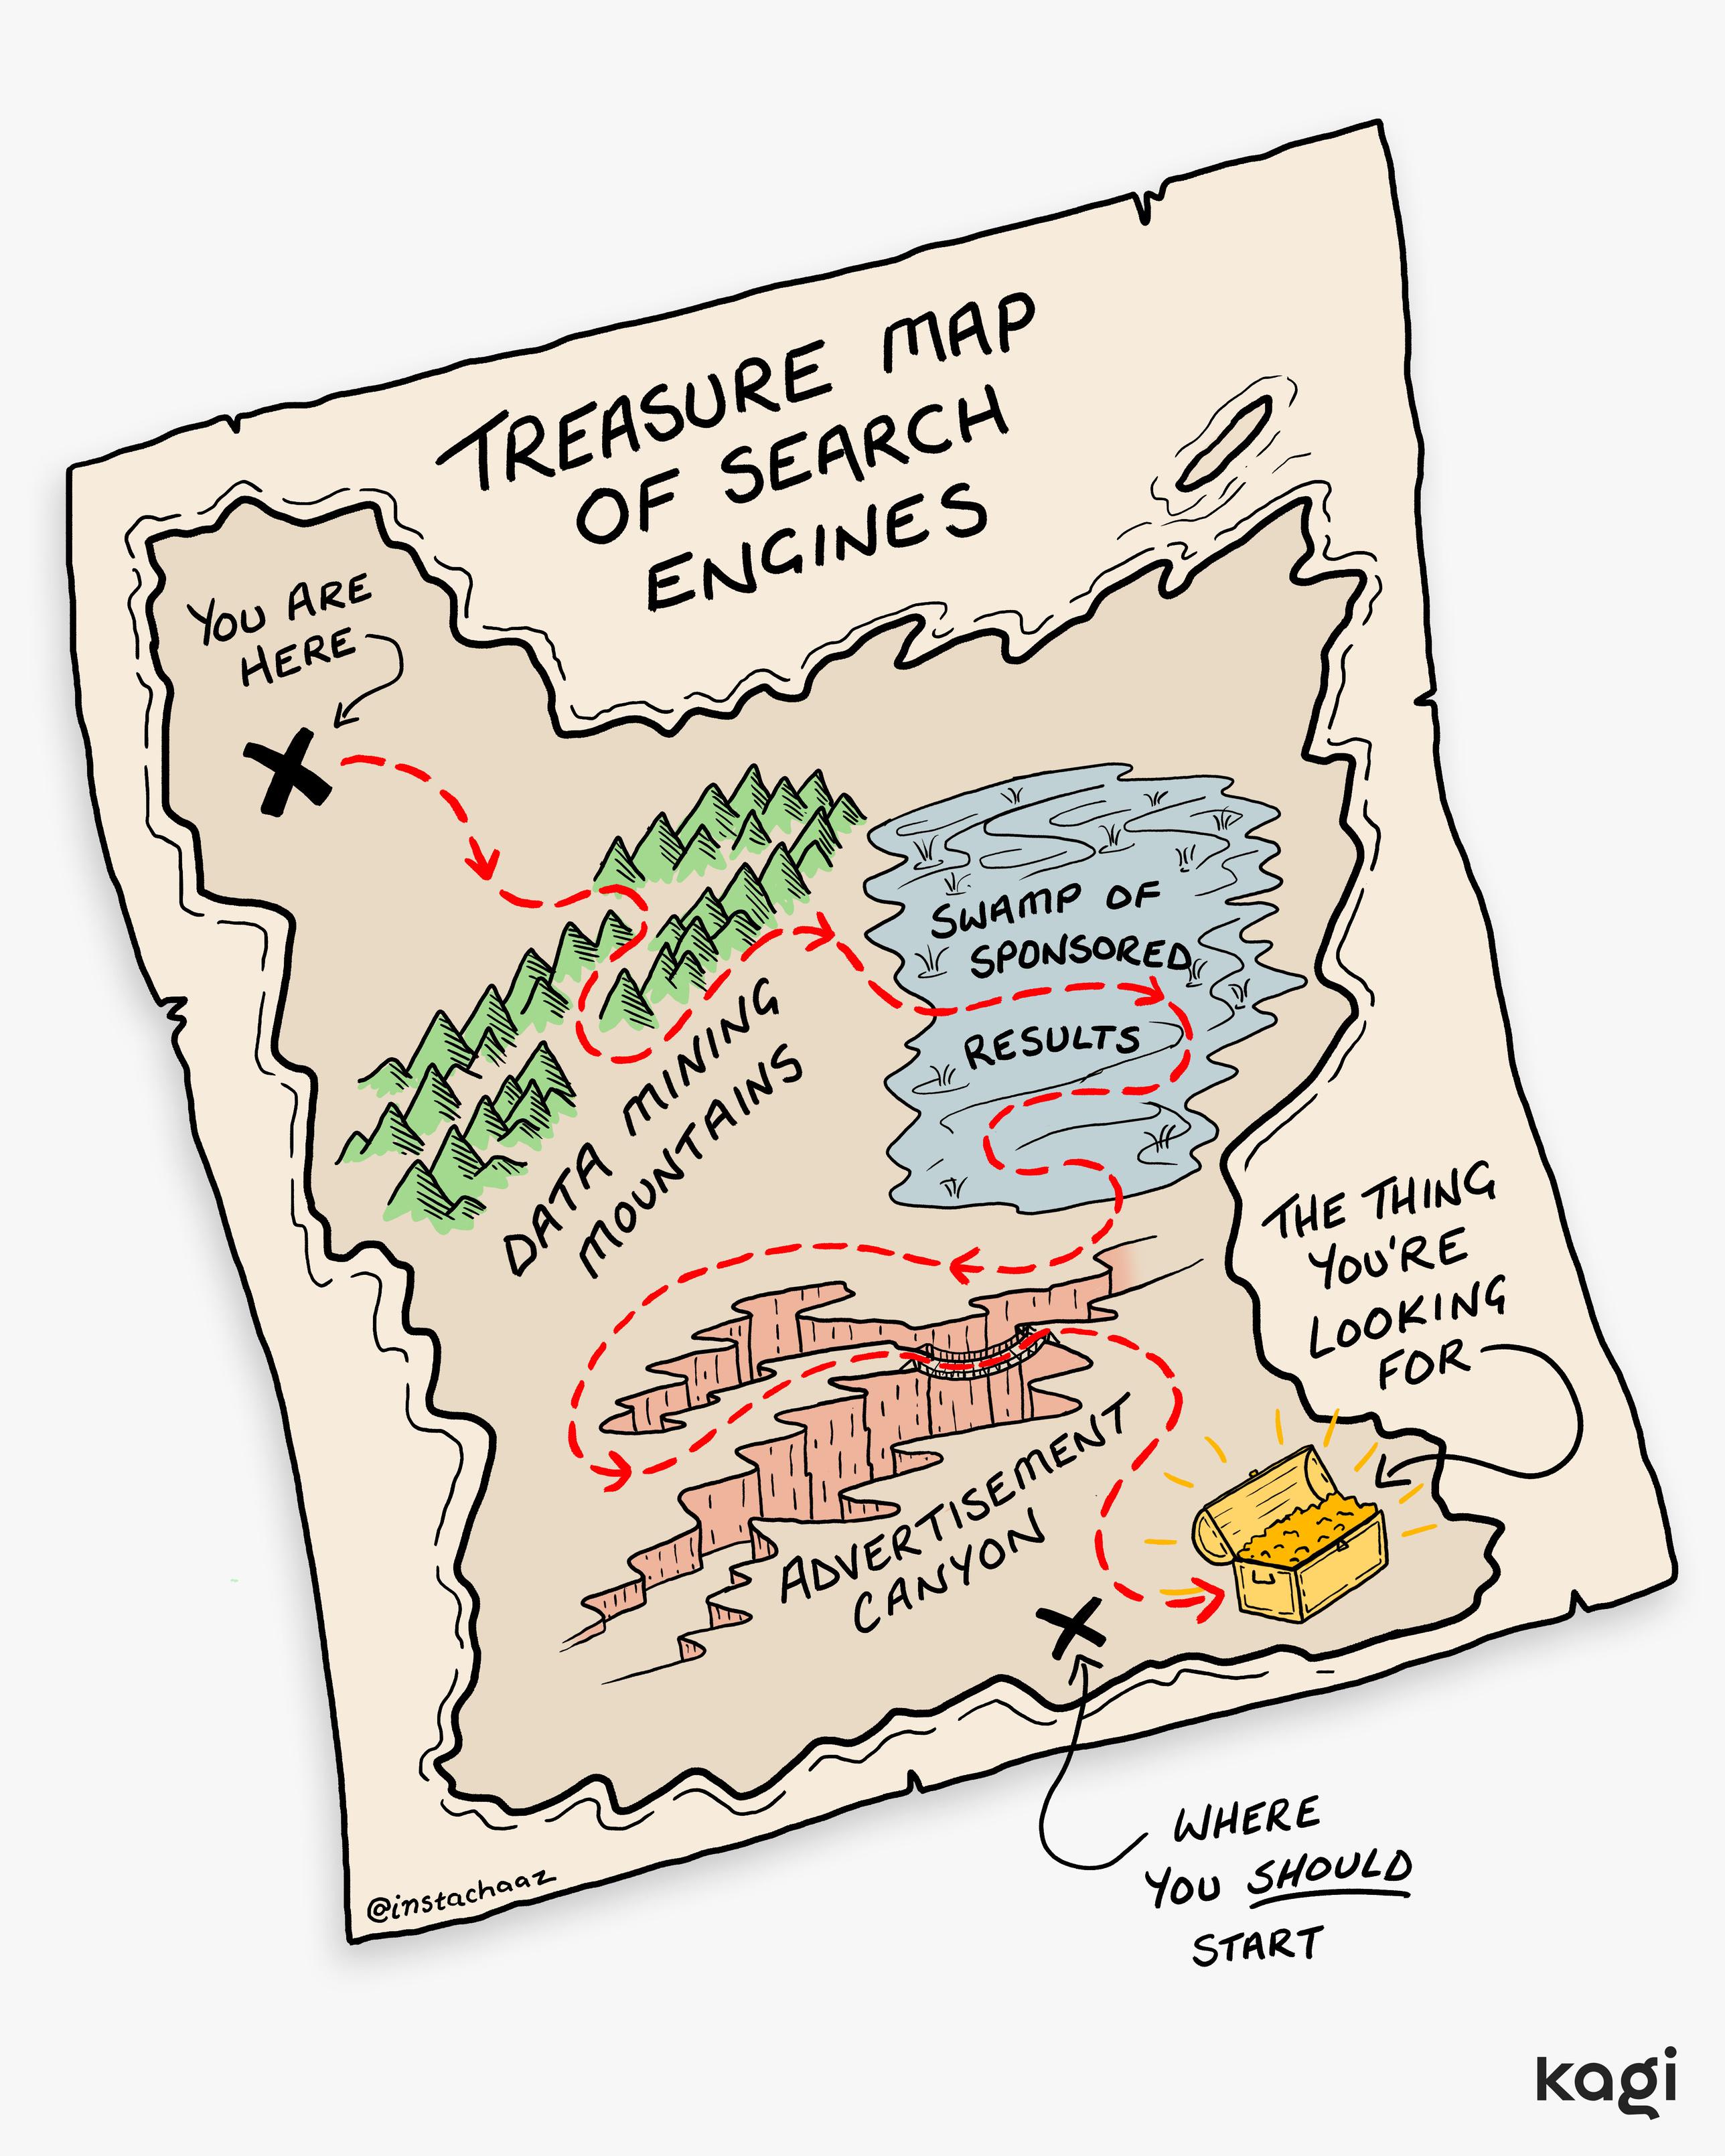 TREASURE MAP
OF SEARCH
ENGINES
YOU ARE
HERE
SWAMP OF
SPONSORED
RESULTS
DATA MINING
MOUNTAINS
THE THING
YOU'RE
LOOKING
FOR
ADVERTISEMENT
CANYON
WHERE
YOU SHOULD
START
@instachaaz
kagi